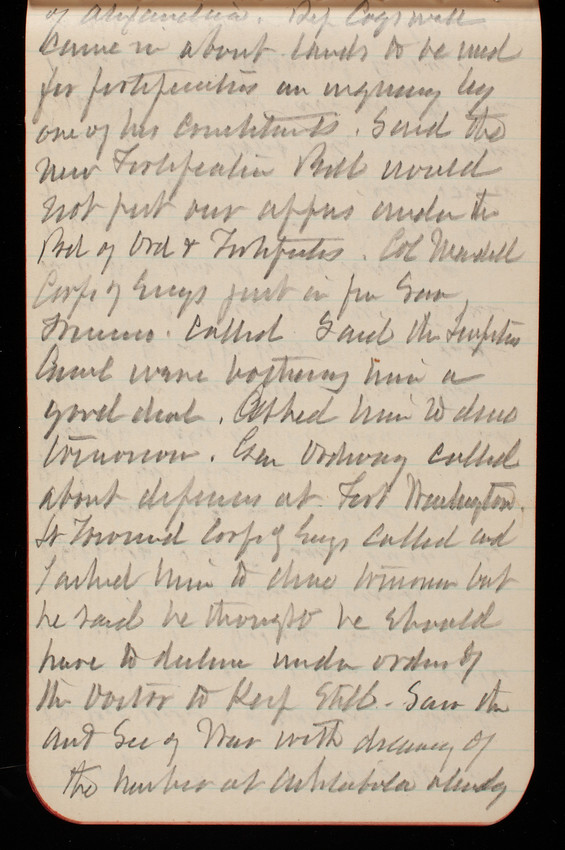 of Alexandria. Rep Cogswell
came in about lands to be used
for fortifications an inquiry by
one of his constituents. Said the
new Fortification Bill would
not put our appns under the
Bd of Ord & Fortifictns. Col Mendell
Corps of Engs just in fm San
Called Said the
Canal were bothering him a
good deal. Asked him to dine
tomorrow. Gen Ordway called
about defenses at Fort Washington.
Lt Townsend Corps of Engs called and
I asked him to dine tomorrow but
he said he thought he should
have to decline under orders of
the Doctor to keep Still. Saw the
Sec of War with drawing of
the harbor at Ashtabula